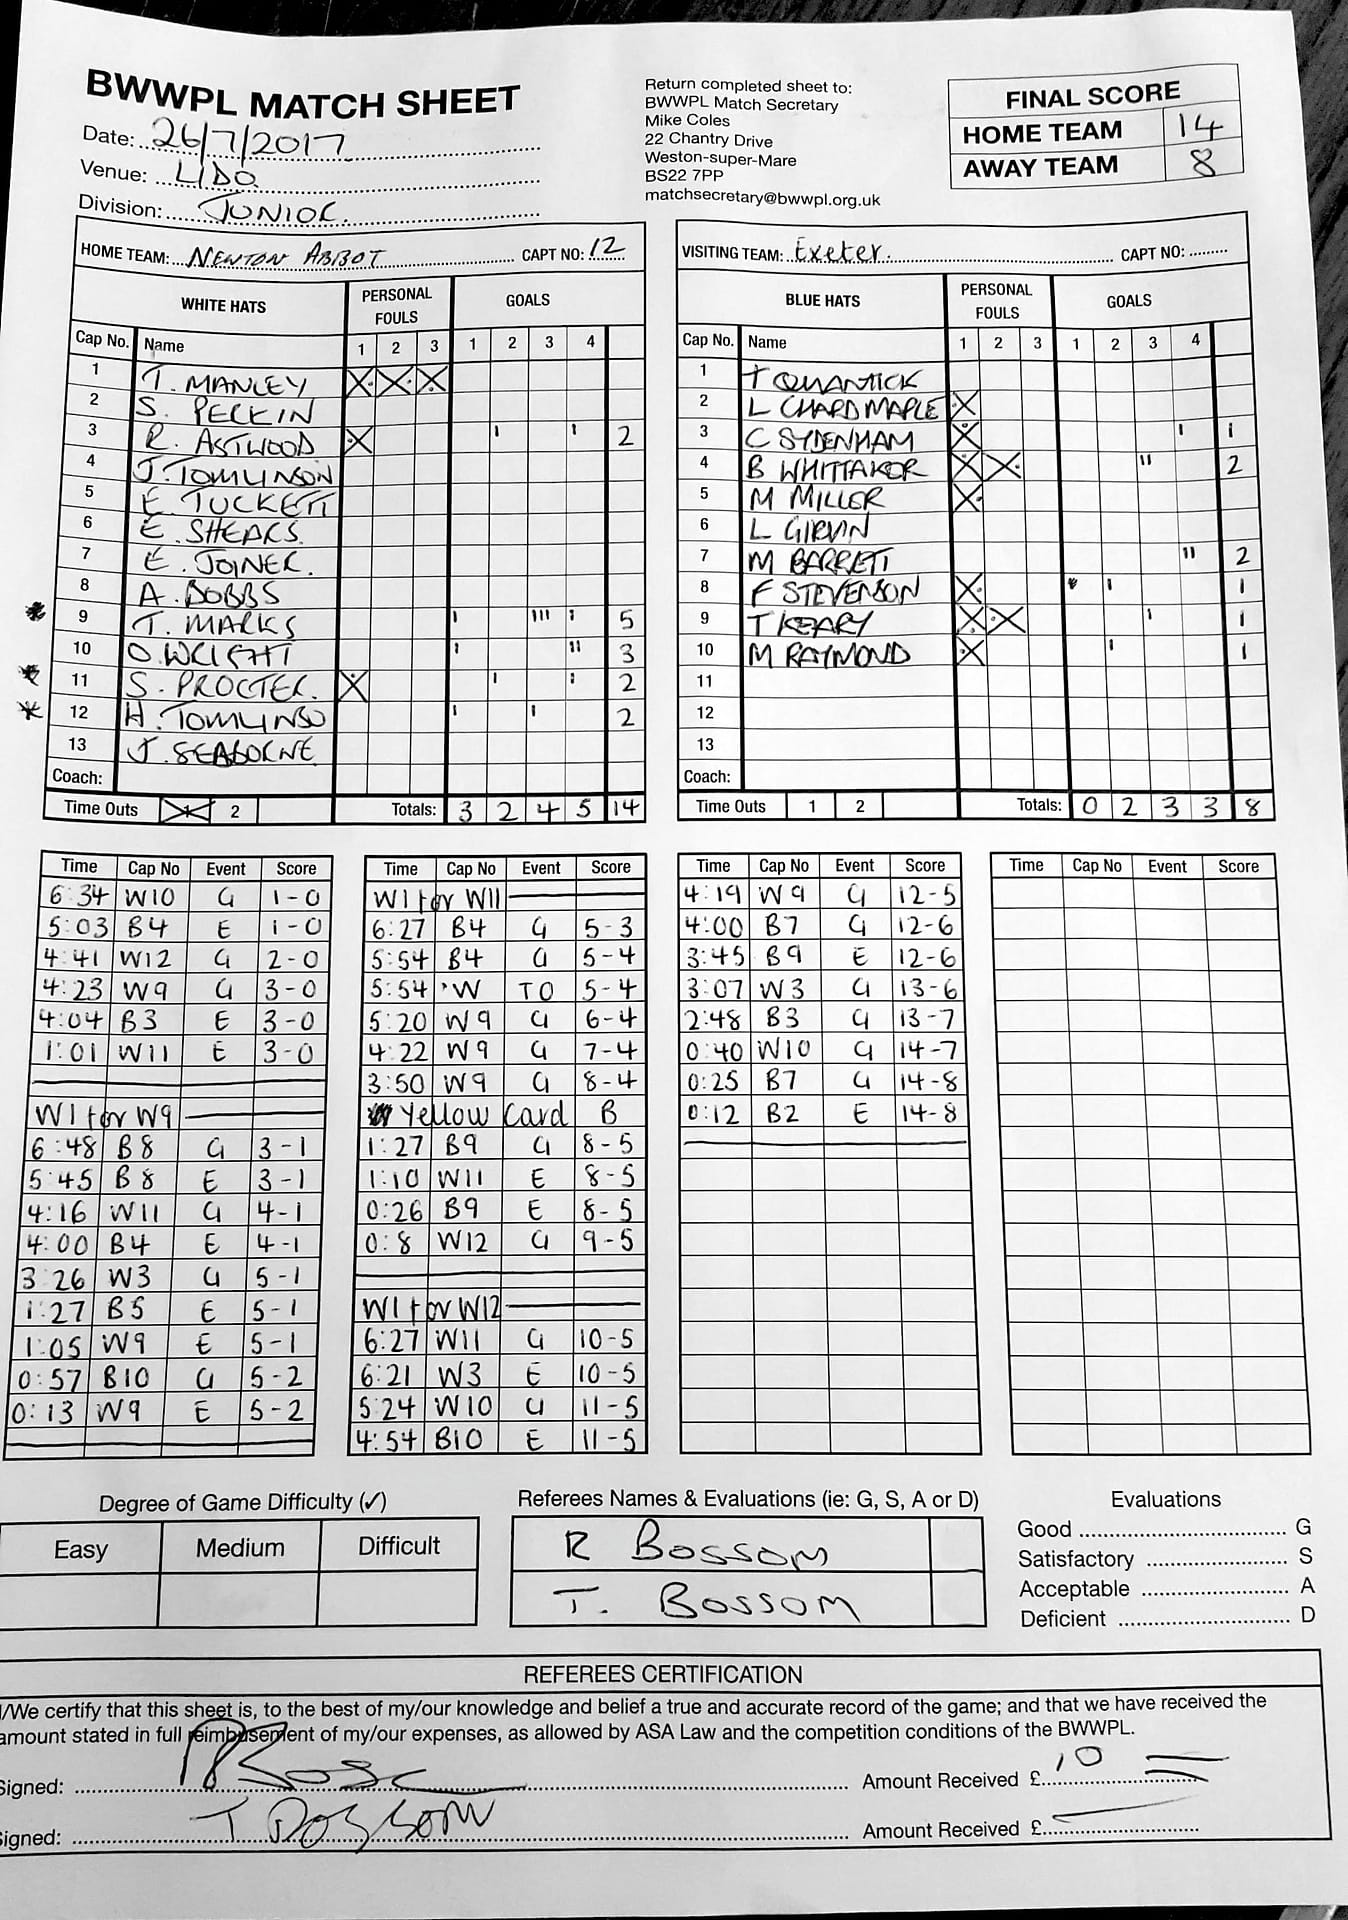 BWWPL MATCH SHEET
Date: 26/7/2017
Venue: LIDO
Division: JUNIOR
Return completed sheet to:
BWWPL Match Secretary
Mike Coles
22 Chantry Drive
Weston-super-Mare
BS22 7PP
matchsecretary@bwwpl.org.uk
FINAL SCORE
HOME TEAM 14
AWAY TEAM 8
HOME TEAM: NEWTON ABBOT CAPT NO: 12
WHITE HATS PERSONAL FOULS GOALS
Cap No. Name 1 2 3 1 2 3 4
1 T. MANLEY X X X
2 S. PERKIN
3 R. ASTWOOD X ı ı 2
4 J. TOMLINSON
5 E. TUCKETT
6 E. SHEARS.
7 E. JOINER.
8 A. DOBBS
* 9 T. MARKS ı ııı ı 5
10 O. WRIGHT ı ıı 3
* 11 S. PROCTER. X ı ı 2
* 12 H. TOMLINSO ı ı 2
13 J. SEABORNE
Coach:
Time Outs 1 2 Totals: 3 2 4 5 14
VISITING TEAM: Exeter. CAPT NO:
BLUE HATS PERSONAL FOULS GOALS
Cap No. Name 1 2 3 1 2 3 4
1 T QUANTICK
2 L CHARDMAPLE X
3 C SYDENHAM X ı 1
4 B WHITTAKER X X ıı 2
5 M MILLER X
6 L GIRVIN
7 M BARRETT ıı 2
8 F STEVENSON X ı 1
9 T KEARY X X ı 1
10 M RAYMOND X ı 1
11
12
13
Coach:
Time Outs 1 2 Totals: 0 2 3 3 8
Time Cap No Event Score
6:34 W10 G 1-0
5:03 B4 E 1-0
4:41 W12 G 2-0
4:23 W9 G 3-0
4:04 B3 E 3-0
1:01 W11 E 3-0
W1 for W9
6:48 B8 G 3-1
5:45 B8 E 3-1
4:16 W11 G 4-1
4:00 B4 E 4-1
3:26 W3 G 5-1
1:27 B5 E 5-1
1:05 W9 E 5-1
0:57 B10 G 5-2
0:13 W9 E 5-2
Time Cap No Event Score
W1 for W11
6:27 B4 G 5-3
5:54 B4 G 5-4
5:54 W TO 5-4
5:20 W9 G 6-4
4:22 W9 G 7-4
3:50 W9 G 8-4
Yellow Card B
1:27 B9 G 8-5
1:10 W11 E 8-5
0:26 B9 E 8-5
0:8 W12 G 9-5
W1 for W12
6:27 W11 G 10-5
6:21 W3 E 10-5
5:24 W10 G 11-5
4:54 B10 E 11-5
Time Cap No Event Score
4:19 W9 G 12-5
4:00 B7 G 12-6
3:45 B9 E 12-6
3:07 W3 G 13-6
2:48 B3 G 13-7
0:40 W10 G 14-7
0:25 B7 G 14-8
0:12 B2 E 14-8
Time Cap No Event Score
Degree of Game Difficulty (✓)
Easy Medium Difficult
Referees Names & Evaluations (ie: G, S, A or D)
R Bossom
T. Bossom
Evaluations
Good G
Satisfactory S
Acceptable A
Deficient D
REFEREES CERTIFICATION
I/We certify that this sheet is, to the best of my/our knowledge and belief a true and accurate record of the game; and that we have received the
amount stated in full reimbursement of my/our expenses, as allowed by ASA Law and the competition conditions of the BWWPL.
Signed: Amount Received £ 10
Signed: T Bossom Amount Received £